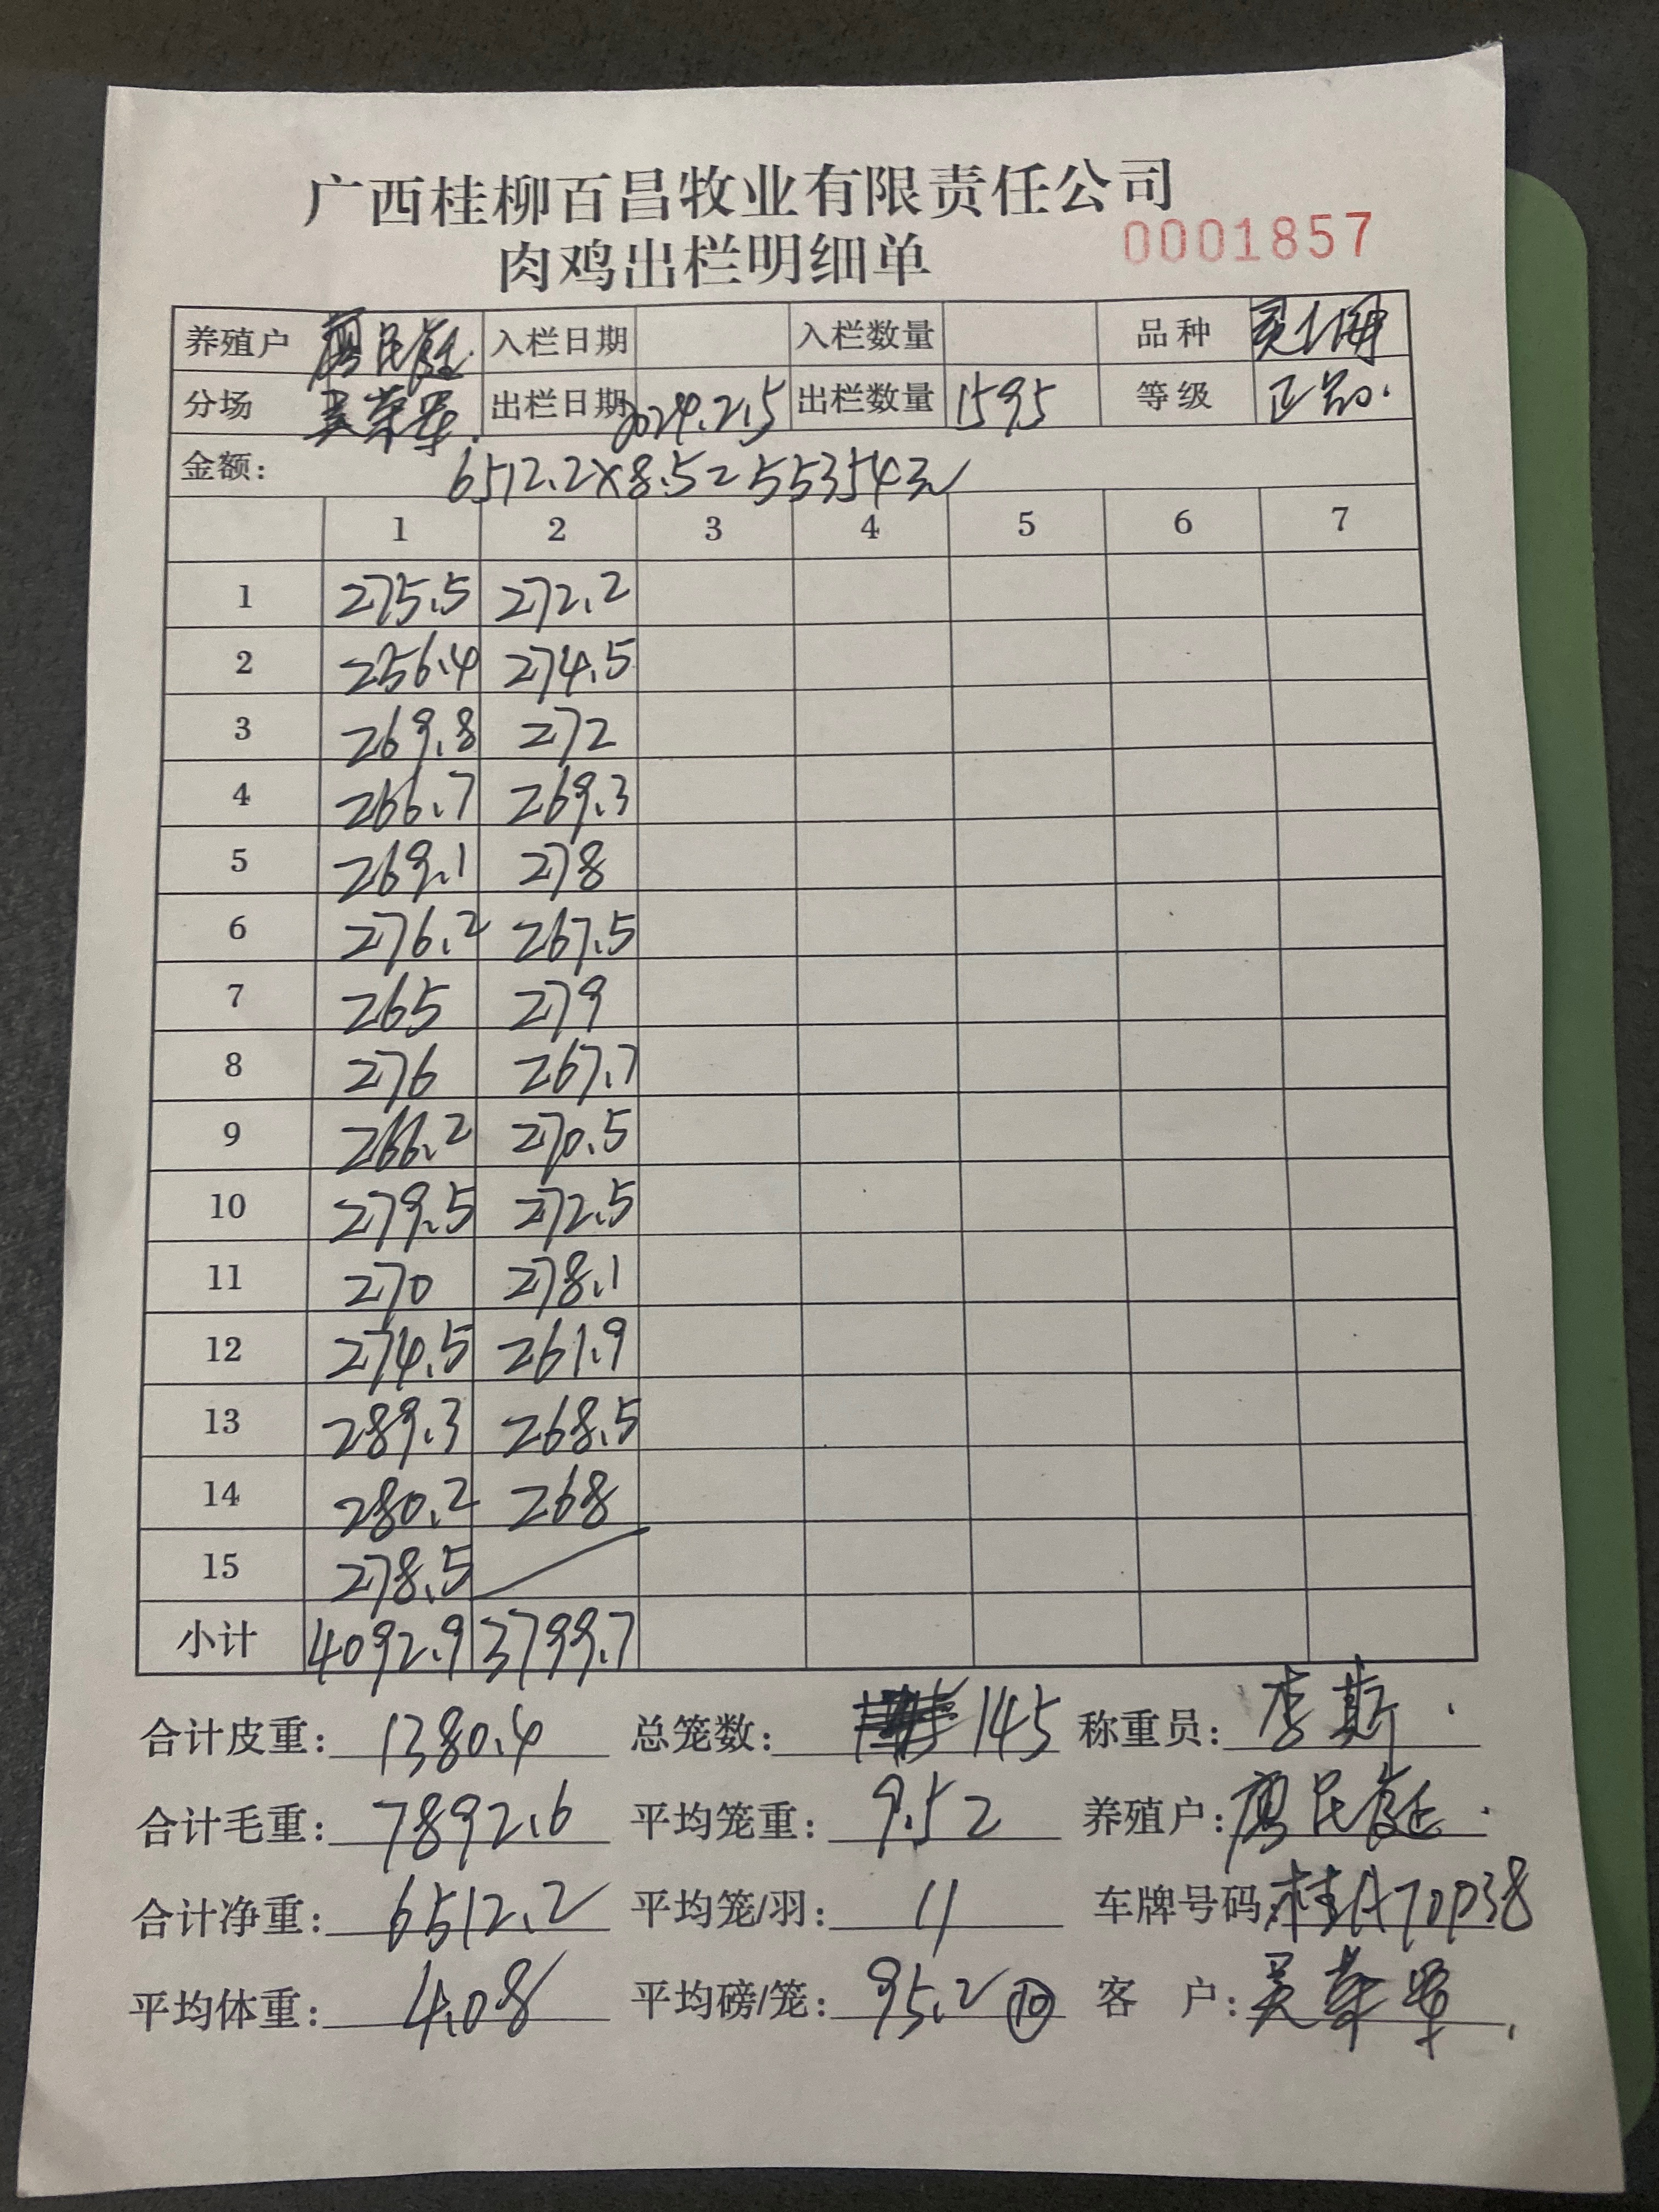 广西桂柳百昌牧业有限责任公司
肉鸡出栏明细单 0001857
养殖户 入栏日期 入栏数量 品种
分场 吴荣军 出栏日期 2024.2.5 出栏数量 1595 等级 正品
金额: 6512.2×8.5=55354元
1 2 3 4 5 6 7
1 275.5 272.2
2 256.4 274.5
3 269.8 272
4 266.7 269.3
5 269.1 278
6 276.2 267.5
7 265 279
8 276 267.7
9 266.2 270.5
10 279.5 272.5
11 270 278.1
12 274.5 261.9
13 289.3 268.5
14 280.2 268
15 278.5
小计 4092.9 3799.7
合计皮重: 1380.4 总笼数: 145 称重员: 李斯
合计毛重: 7892.6 平均笼重: 9.52 养殖户:
合计净重: 6512.2 平均笼/羽: 11 车牌号码: 桂A70P38
平均体重: 4.08 平均磅/笼: 95.2 ⑩ 客 户: 吴荣军